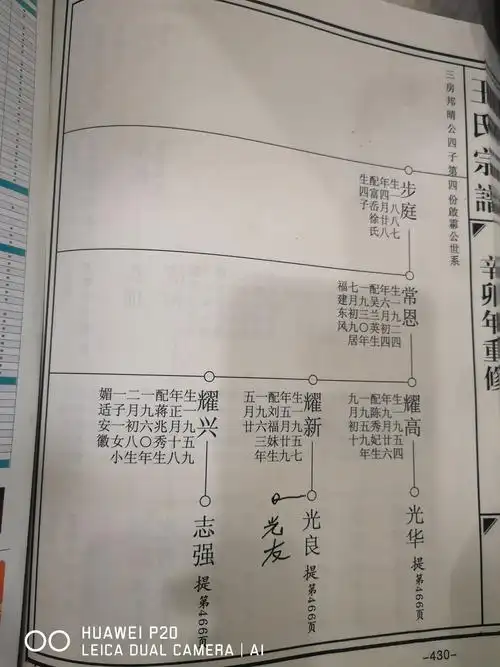 王氏宗譜
辛卯年重修
三房邦晴公四子第四份啟霖公世系
步庭
生一八八七
年四月廿八
配富岳徐氏
生四子
常恩
生一九二四
年六月初四
配吴兰英生
一九三〇年
七月初九居
福建东风
耀高
生一九五四
年九月廿六
配陈秀妃生
光华
提第466页
耀新
生一九五七
年五月廿九
配刘福妹生
一九六三年
五月廿
光良
提第466页
光友
耀兴
生一九五九
年正月十八
配蒋兆秀生
一九六〇年
二月初八生
一子一女小
媚适安徽
志强
提第466页
-430-
HUAWEI P20
LEICA DUAL CAMERA | AI